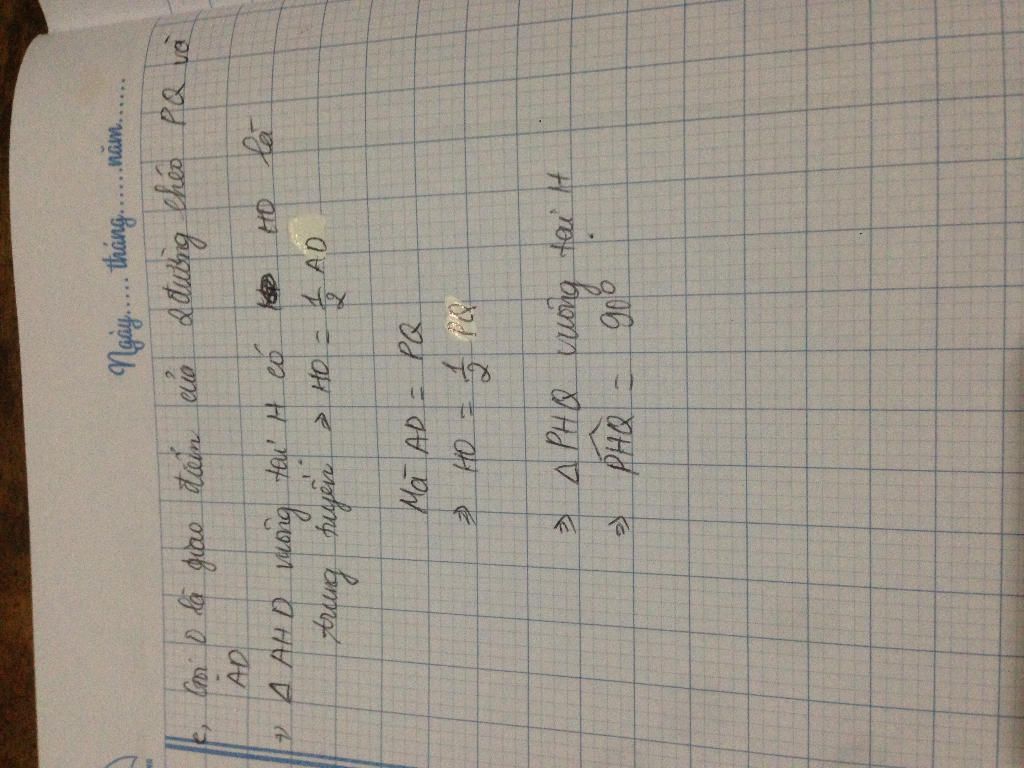 Ngày..... tháng.......năm.......
c, Gọi O là giao điểm của 2 đường chéo PQ và
AD
=> Δ AHD vuông tại H có HO là
trung tuyến => HO = 1/2 AD
Mà AD = PQ
=> HO = 1/2 PQ
=> Δ PHQ vuông tại H
=> \widehat{PHQ} = 90°